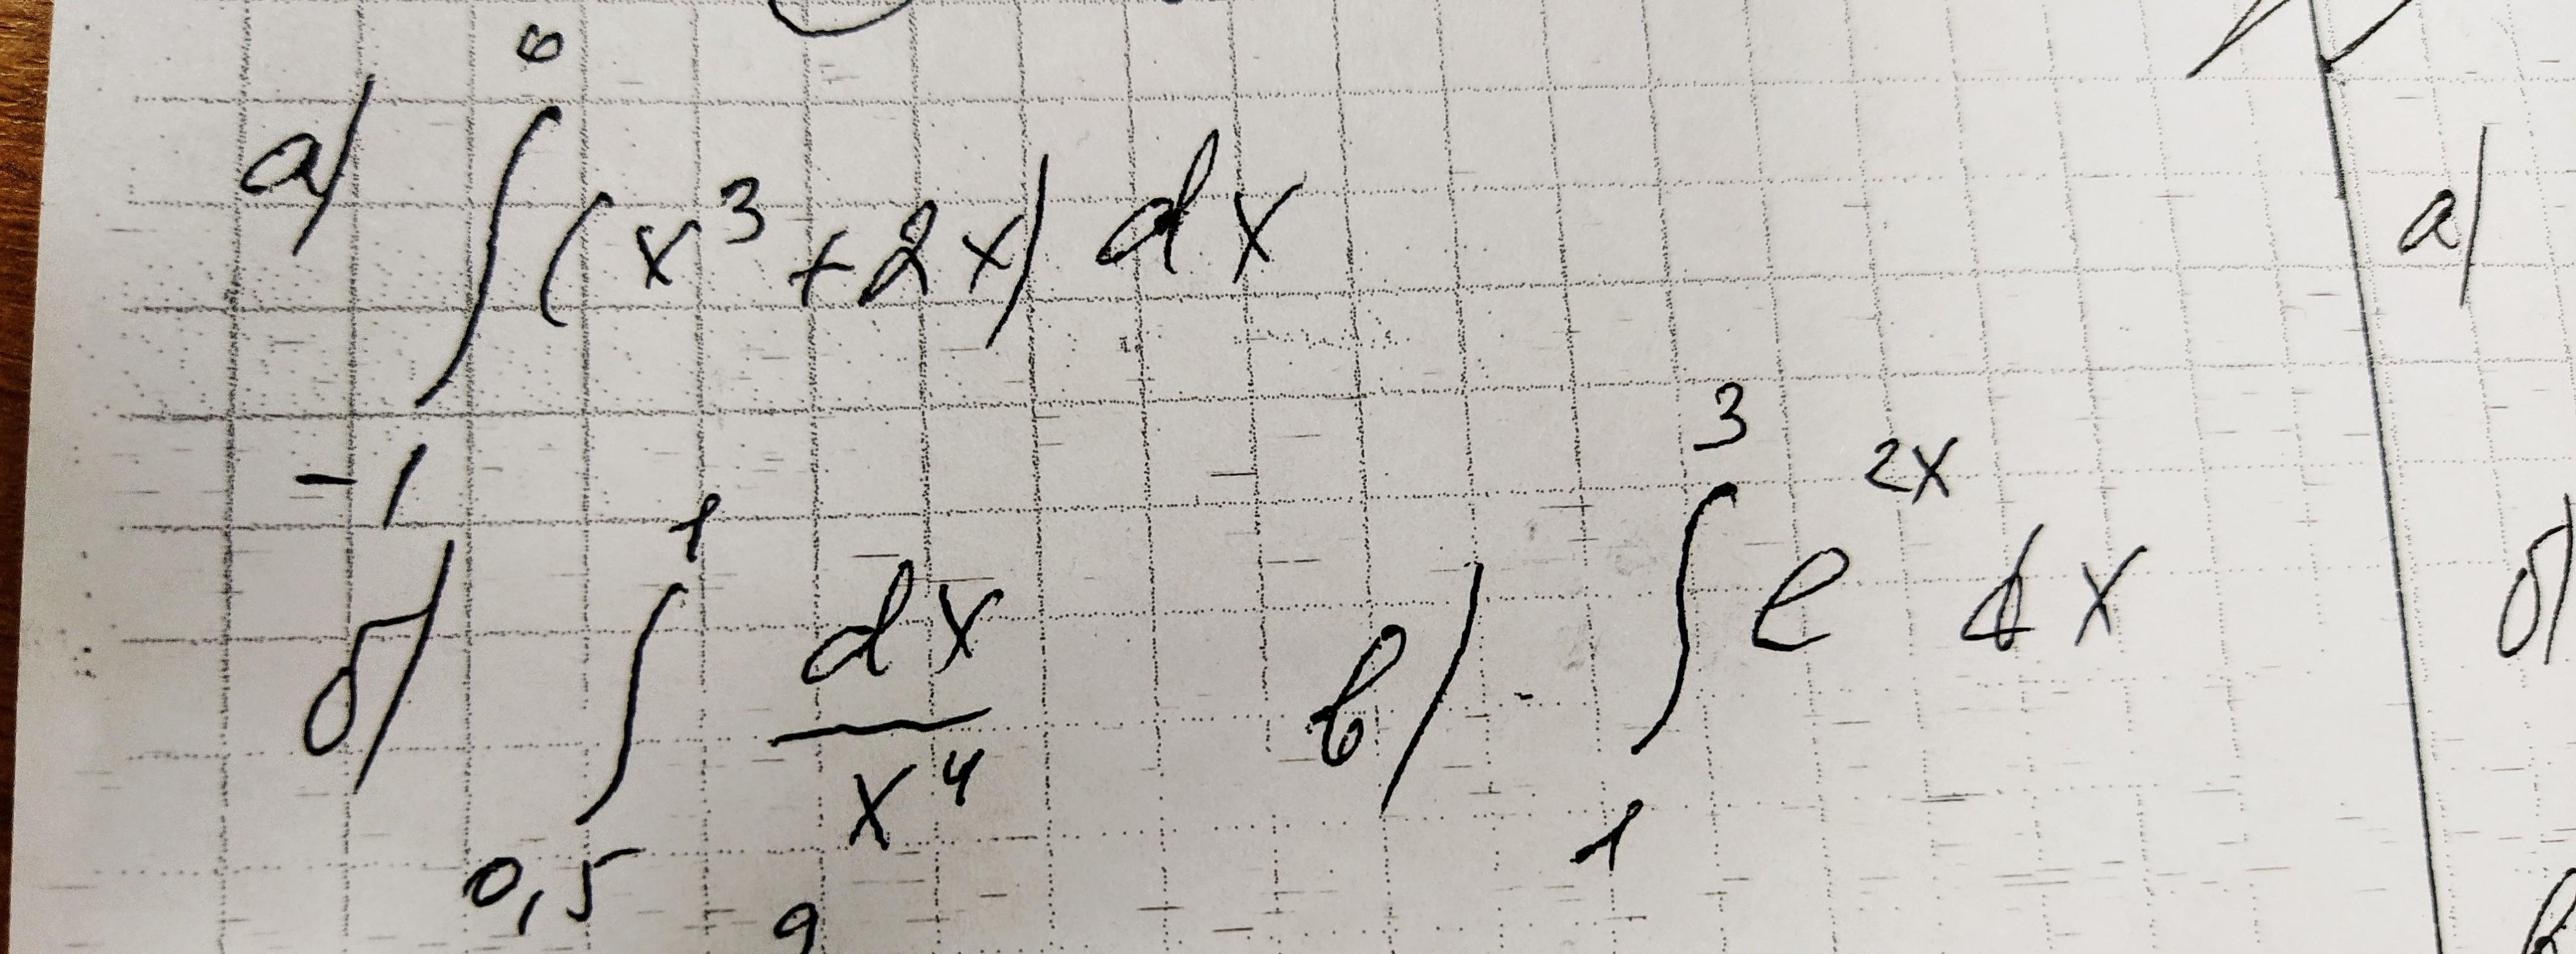 а) ∫₋₁⁰ (x³ + 2x) dx
б) ∫₀,₅¹ dx/x⁴
в) ∫₁³ e²ˣ dx
9
а)
б)